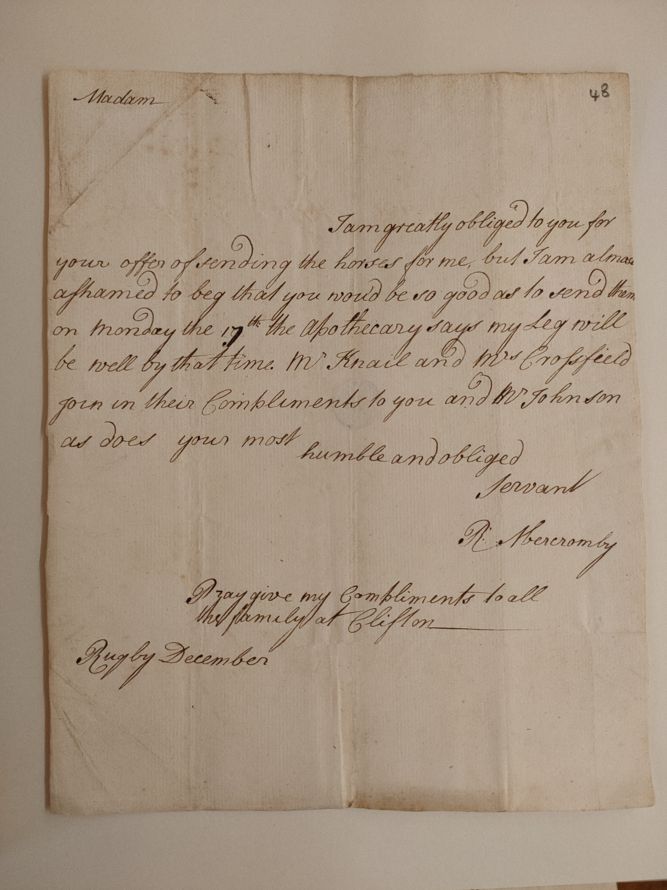 Madam
48
I am greatly obliged to you for
your offer of sending the horses for me, but I am almost
ashamed to beg that you wou'd be so good as to send them
on Monday the 17th the Apothecary says my Leg will
be well by that time. Mr Knail and Mrs Crossfield
join in their Compliments to you and Mr Johnson
as does your most
humble and obliged
Servant
R: Abercromby
Pray give my Compliments to all
the family at Clifton
Rugby December